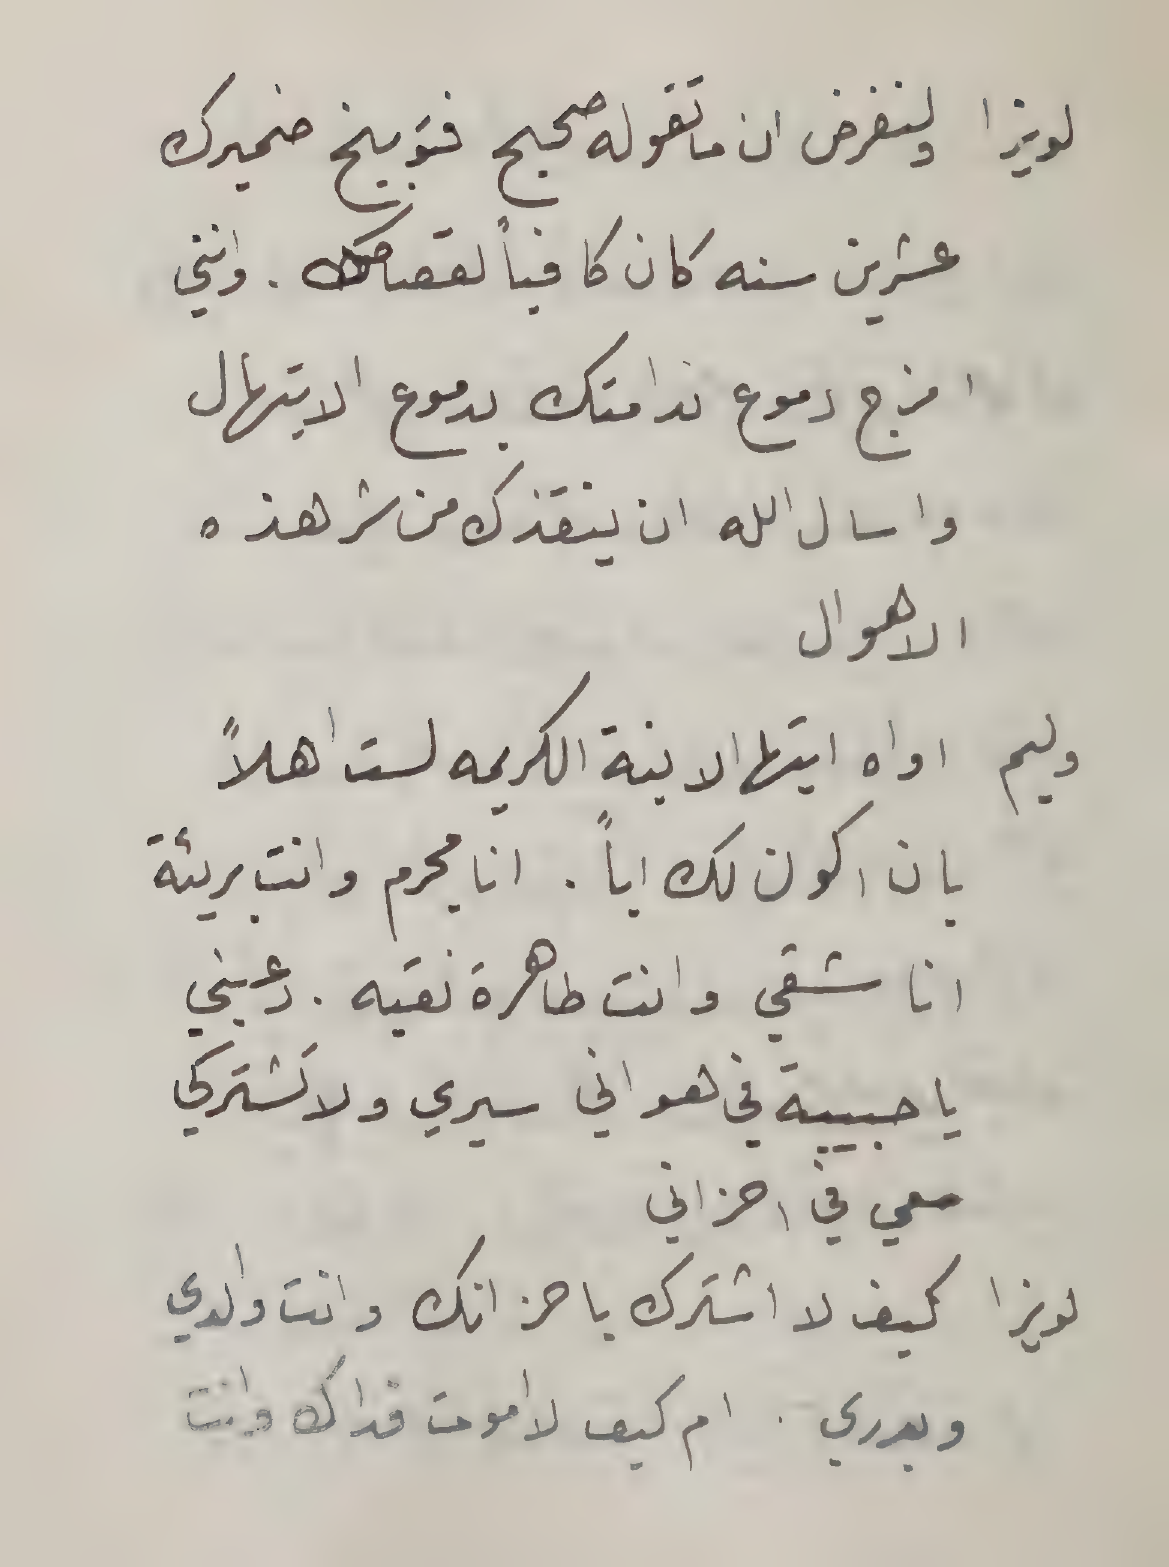 لويزا ولنفرض ان ما تقوله صحيح فتوبيخ ضميرك
عشرين سنه كان كافياً لقصاصك . وانني
امزج دموع ندامتك بدموع الابتهال
واسال الله ان ينقذك من شر هذه
الاهوال
وليم اواه ايتها الابنة الكريمه لست اهلاً
بان اكون لك اباً . انا مجرم وانت بريئة
انا شقي وانت طاهرة نقيه . دعيني
يا حبيبة في هواني سيري ولا تشتركي
معي في احزاني
لويزا كيف لا اشترك باحزانك وانت والدي
وبدري . ام كيف لا اموت فداك وانت